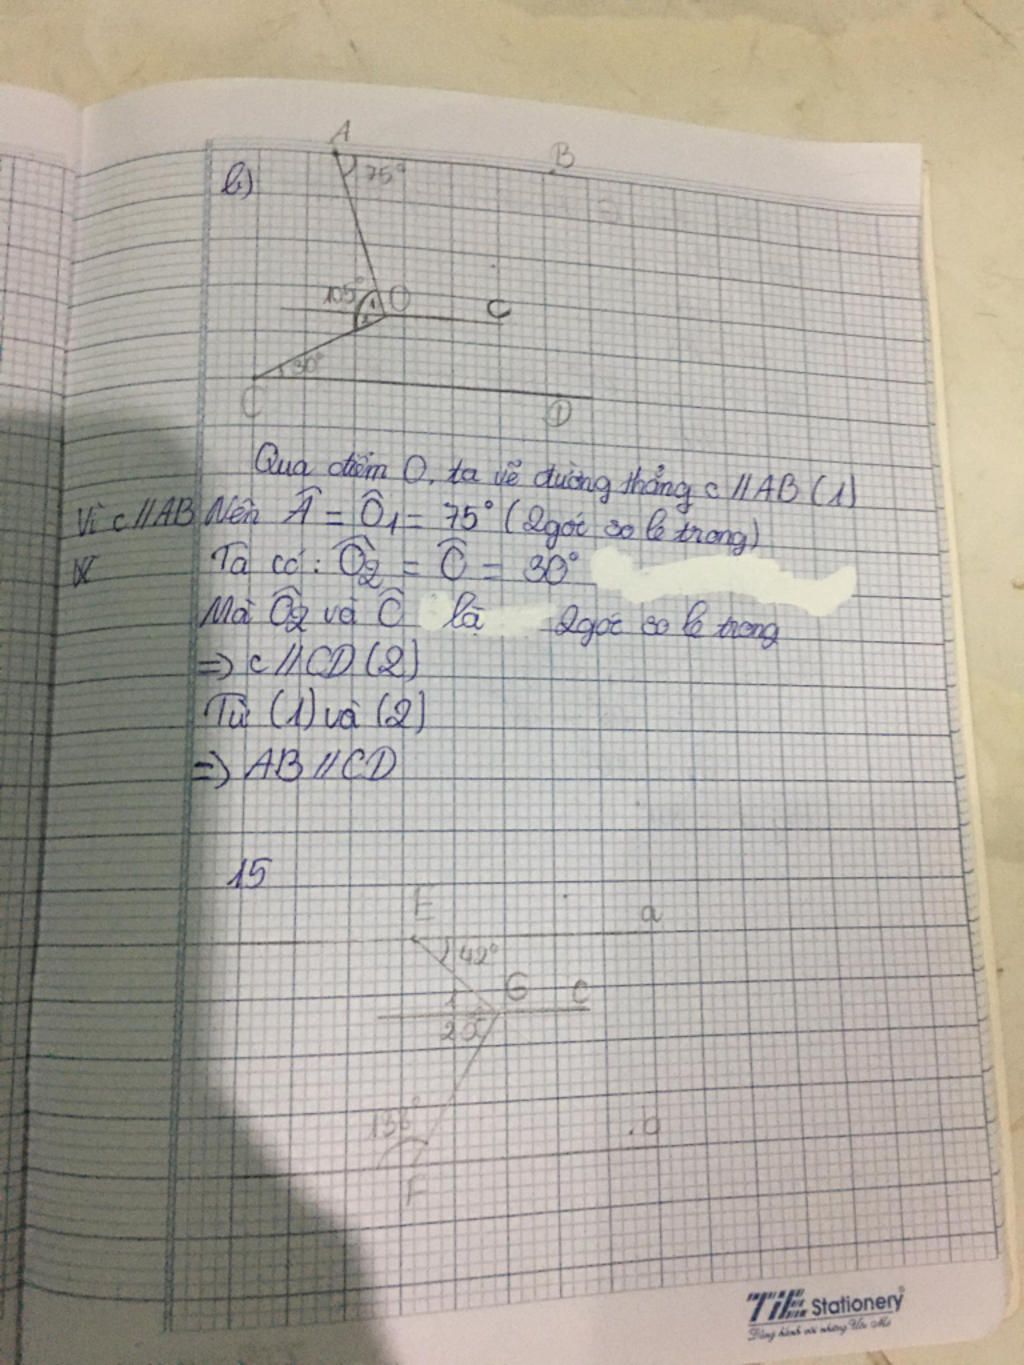 A
B
b)
75°
105°
1
O
c
2
30°
C
D
Qua điểm O, ta vẽ đường thẳng c // AB (1)
Vì c // AB Nên Â = Ô1 = 75° (2 góc so le trong)
Ta có: Ô2 = Ĉ = 30°
Mà Ô2 và Ĉ là 2 góc so le trong
=> c // CD (2)
Từ (1) và (2)
=> AB // CD
15
E
a
42°
1
G
c
2
b
F
TiE Stationery
Đồng hành với những Ước Mơ